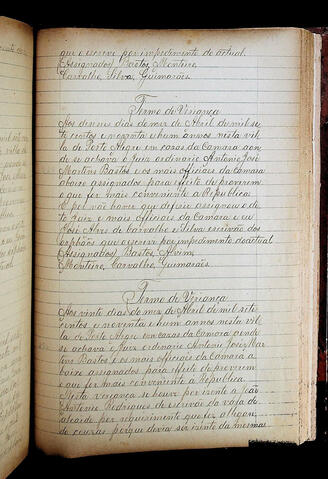 que o escrevi por impedimento do actual
Assignados Bastos, Monteiro,
Carvalho, Silva, Guimarães.
Termo de Veriança
Aos deseseis dias do mez de Abril de mil se
te centos e noventa e hum annos nesta vil
la de Porto Alegre em cazas da Camara aon
de se achavão o Juiz ordinario Antonio José
Martins Bastos e os mais officiaes da Camara
abaixo assignados para effeito de proverem
o que for mais conveniente a Republica.
E pel não haver que deferir assignou o di
to Juiz e mais officiaes da Camara e eu
José Alves de Carvalho e Silva escrivão dos
orphãos que o escrevi por impedimento do actual
Assignados Bastos, Alvim,
Monteiro, Carvalho, Guimarães.
Termo de Veriança
Aos vinte dias do mez de Abril de mil sete
centos e noventa e hum annos nesta vil
la de Porto Alegre em cazas da Camara aonde
se achava o Juiz ordinario Antonio José Mar
tins Bastos e os mais officiaes da Camara a
baixo assignados para effeito de proverem
o que for mais conveniente a Republica
Nesta veriança se houve por izento a João
Antonio Rodrigues de escrivão da vara do
alcaide por requerimento que fez allegan
do couzas porque devia ser izento da mesmas